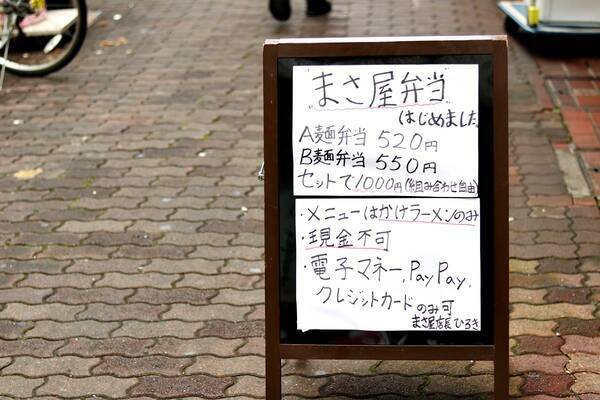 "まさ屋弁当"
はじめました
A麺弁当 520円
B麺弁当 550円
セットで1000円(組み合わせ自由)
・メニューはかけラーメンのみ
・現金不可
・電子マネー,PayPay,
クレジットカードのみ可
まさ屋店長ひろき